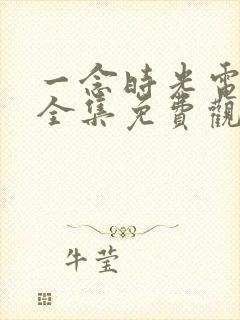 一念時光電
全集免費觀
牛莹